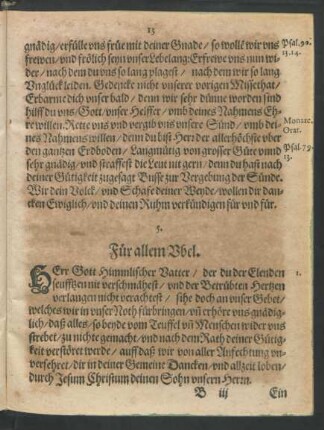 15
gnädig/erfülle vns früe mit deiner Gnade/ so wollē wir vns
frewen/ vnd frölich seyn vnser Lebelang: Erfrewe vns nun wi-
der/ nach dem du vns so lang plagest / nach dem wir so lang
Vnglück leiden. Gedencke nicht vnserer vorigen Missethat/
Erbarme dich vnser bald / denn wir sehr dünne worden sind
hilff du vns/ Gott vnser Helffer / vmb deines Nahmens Eh-
re willen: Rette vns vnd vergib vns vnsere Sünd / vmb dei-
nes Nahmens willen / denn du bist Herr der allerhöchste vber
den gantzen Erdboden/ Langmütig von grosser Güte vnnd
sehr gnädig/ vnd straffest die Leut nit gern/ denn du hast nach
deiner Gütigkeit zugesagt Busse zur Vergebung der Sünde.
Wir dein Volck/ vnd Schafe deiner Weyde/ wollen dir dan-
cken Ewiglich/ vnd deinen Ruhm verkündigen für vnd für.
Psal. 90.
13. 14.
Monarc.
Orat.
Psal. 79.
13.
5.
Für allem Vbel.
HErr Gott Himmlischer Vatter / der du der Elenden
seufftzen nit verschmähest/ vnd der Betrübten Hertzen
verlangen nicht verachtest / sihe doch an vnser Gebet/
welches wir in vnser Noth fürbringen/ vñ erhöre vns gnädig-
lich/ daß alles/ so beyde vom Teuffel vñ Menschen wider vns
strebet/ zu nichte gemacht/ vnd nach dem Rath deiner Gütig-
keit verstöret werde / auff daß wir von aller Anfechtung vn-
versehret / dir in deiner Gemeine Dancken/ vnd allzeit loben-
durch Jesum Christum deinen Sohn vnsern Herrn.
1.
B iij Ein